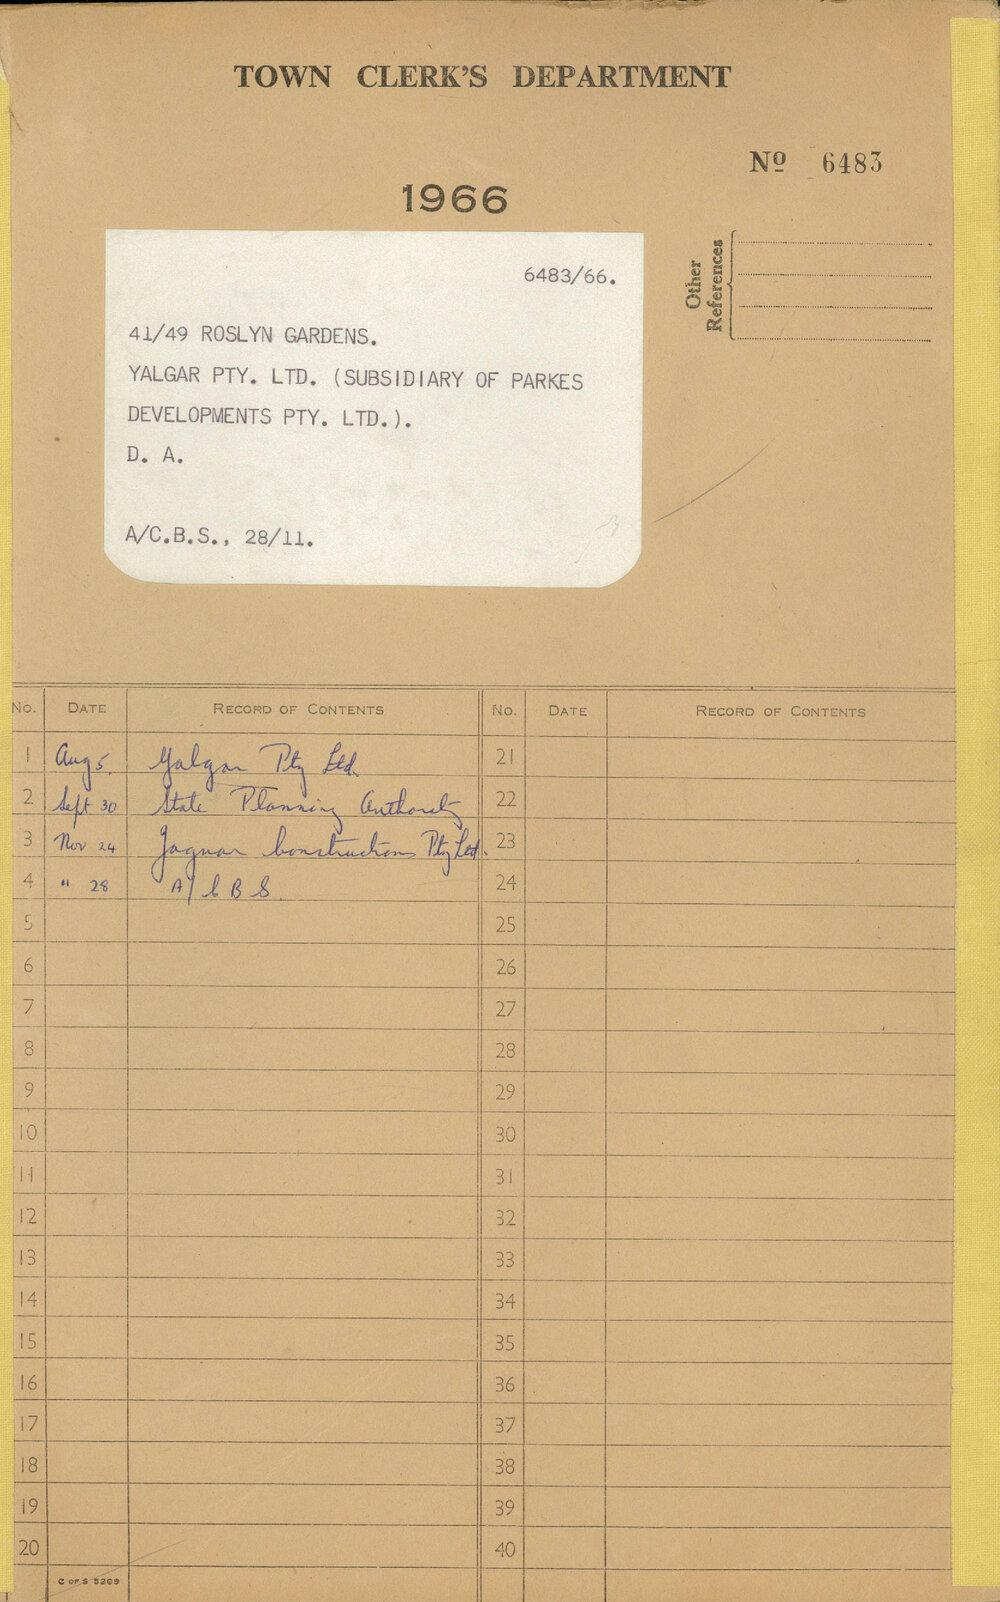 TOWN CLERK'S DEPARTMENT
Nº 6483
1966
Other
References
6483/66.
41/49 ROSLYN GARDENS.
YALGAR PTY. LTD. (SUBSIDIARY OF PARKES
DEVELOPMENTS PTY. LTD.).
D. A.
A/C.B.S., 28/11.
No. DATE RECORD OF CONTENTS No. DATE RECORD OF CONTENTS
1 Aug 5. Yalgar Pty Ltd. 21
2 Sept 30 State Planning Authority 22
3 Nov 24 Jaguar Constructions Pty Ltd. 23
4 " 28 A/CBS. 24
5 25
6 26
7 27
8 28
9 29
10 30
11 31
12 32
13 33
14 34
15 35
16 36
17 37
18 38
19 39
20 40
C OF S 5209